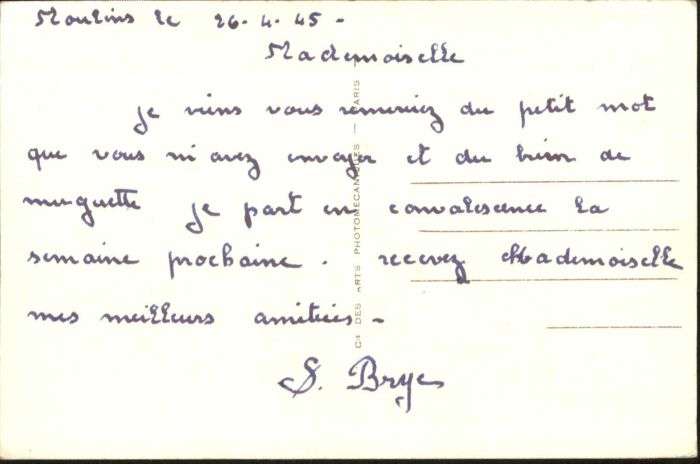 Moulins le 26.4.45-
Mademoiselle
je viens vous remeriez du petit mot
que vous m'avez envoyer et du brin de
muguette je part en convalescence la
semaine prochaine. recevez Mademoiselle
mes meilleurs amitiés-
S. Brye
Cie DES ARTS PHOTOMECANIQUES — PARIS